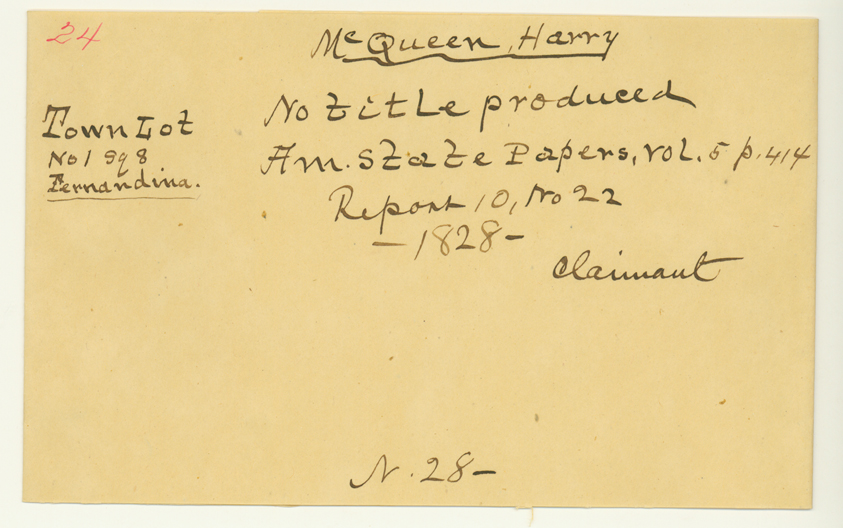 24
McQueen, Harry
No title produced
Town Lot
No 1 Sq 8
Fernandina.
Am. State Papers, Vol. 5 p. 414
Report 10, No 22
- 1828 -
Claimant
N. 28-